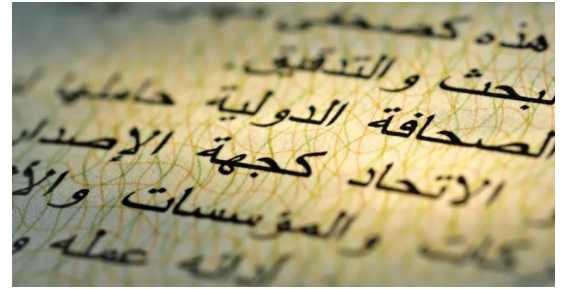 هذه كصحفي
لبحث والتدقيق.
الصحافة الدولية حاملها
الاتحاد كجهة الإصدار
كات والمؤسسات والأ
أدائه عمله و